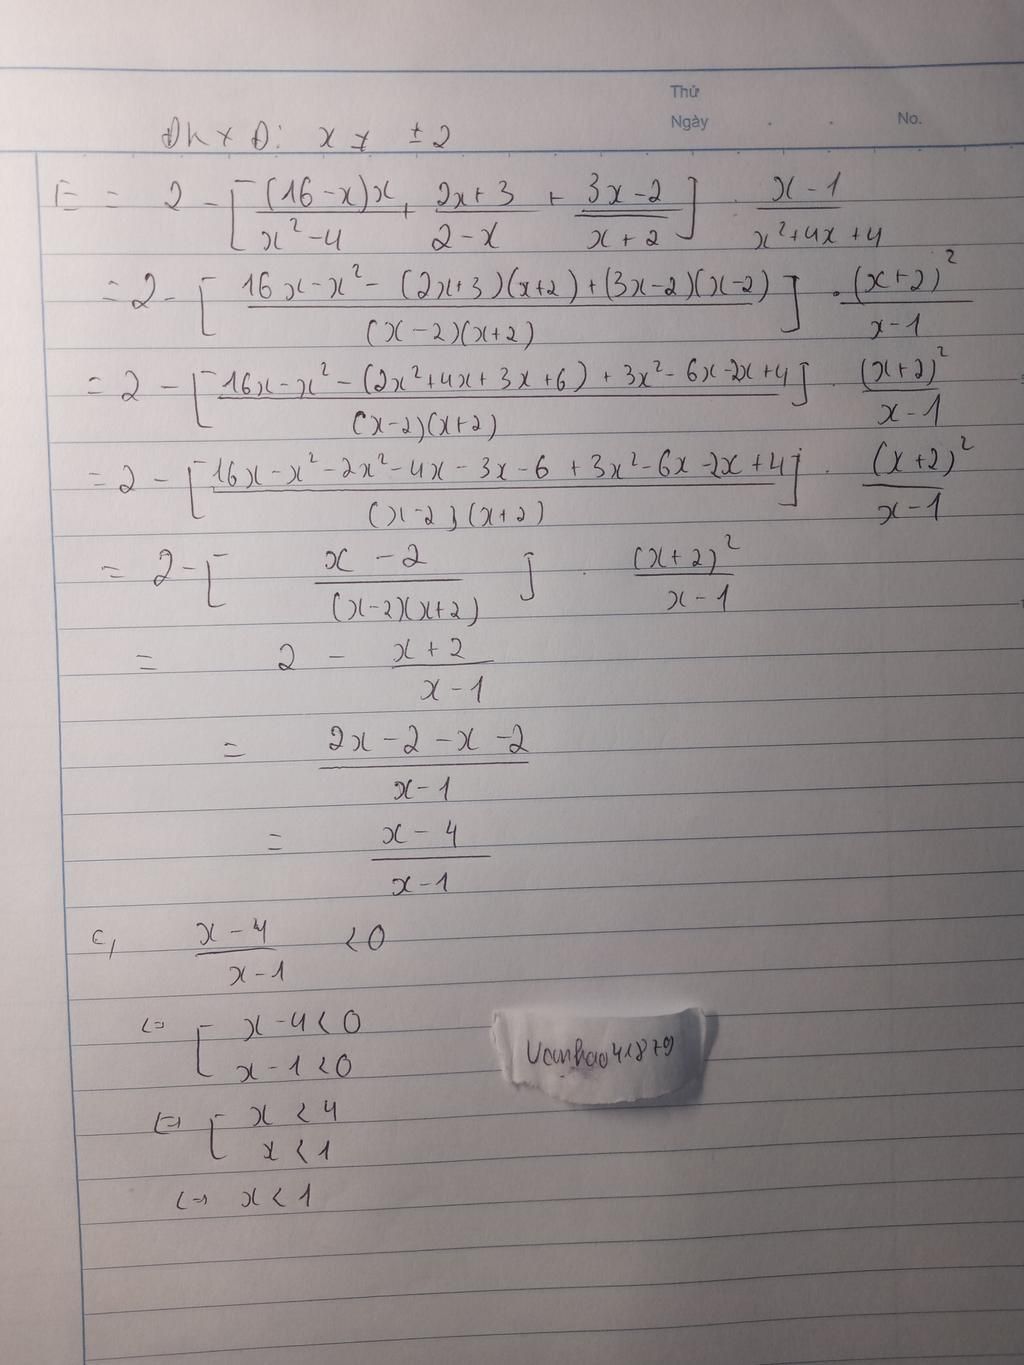 Thứ
Ngày . . No.
ĐKXĐ: x ≠ ±2
E = 2 - [ (16-x)x / x²-4 + 2x+3 / 2-x + 3x-2 / x+2 ] . x-1 / x²+4x+4
= 2 - [ 16x-x² - (2x+3)(x+2) + (3x-2)(x-2) / (x-2)(x+2) ] . (x+2)² / x-1
= 2 - [ 16x-x² - (2x²+4x+3x+6) + 3x²-6x-2x+4 / (x-2)(x+2) ] . (x+2)² / x-1
= 2 - [ 16x-x²-2x²-4x-3x-6+3x²-6x-2x+4 / (x-2)(x+2) ] . (x+2)² / x-1
= 2 - [ x-2 / (x-2)(x+2) ] . (x+2)² / x-1
= 2 - x+2 / x-1
= 2x-2-x-2 / x-1
= x-4 / x-1
c, x-4 / x-1 < 0
<=> [ x-4<0
x-1<0
<=> [ x<4
x<1
<=> x<1
Vanhao41879